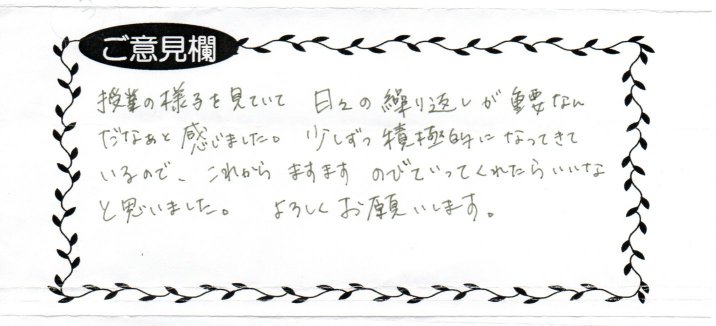 ご意見欄
授業の様子を見ていて 日々の繰り返しが重要なん
だなあと感じました。 少しずつ積極的になってきて
いるので、これから ますます のびていってくれたらいいな
と思いました。 よろしくお願いします。